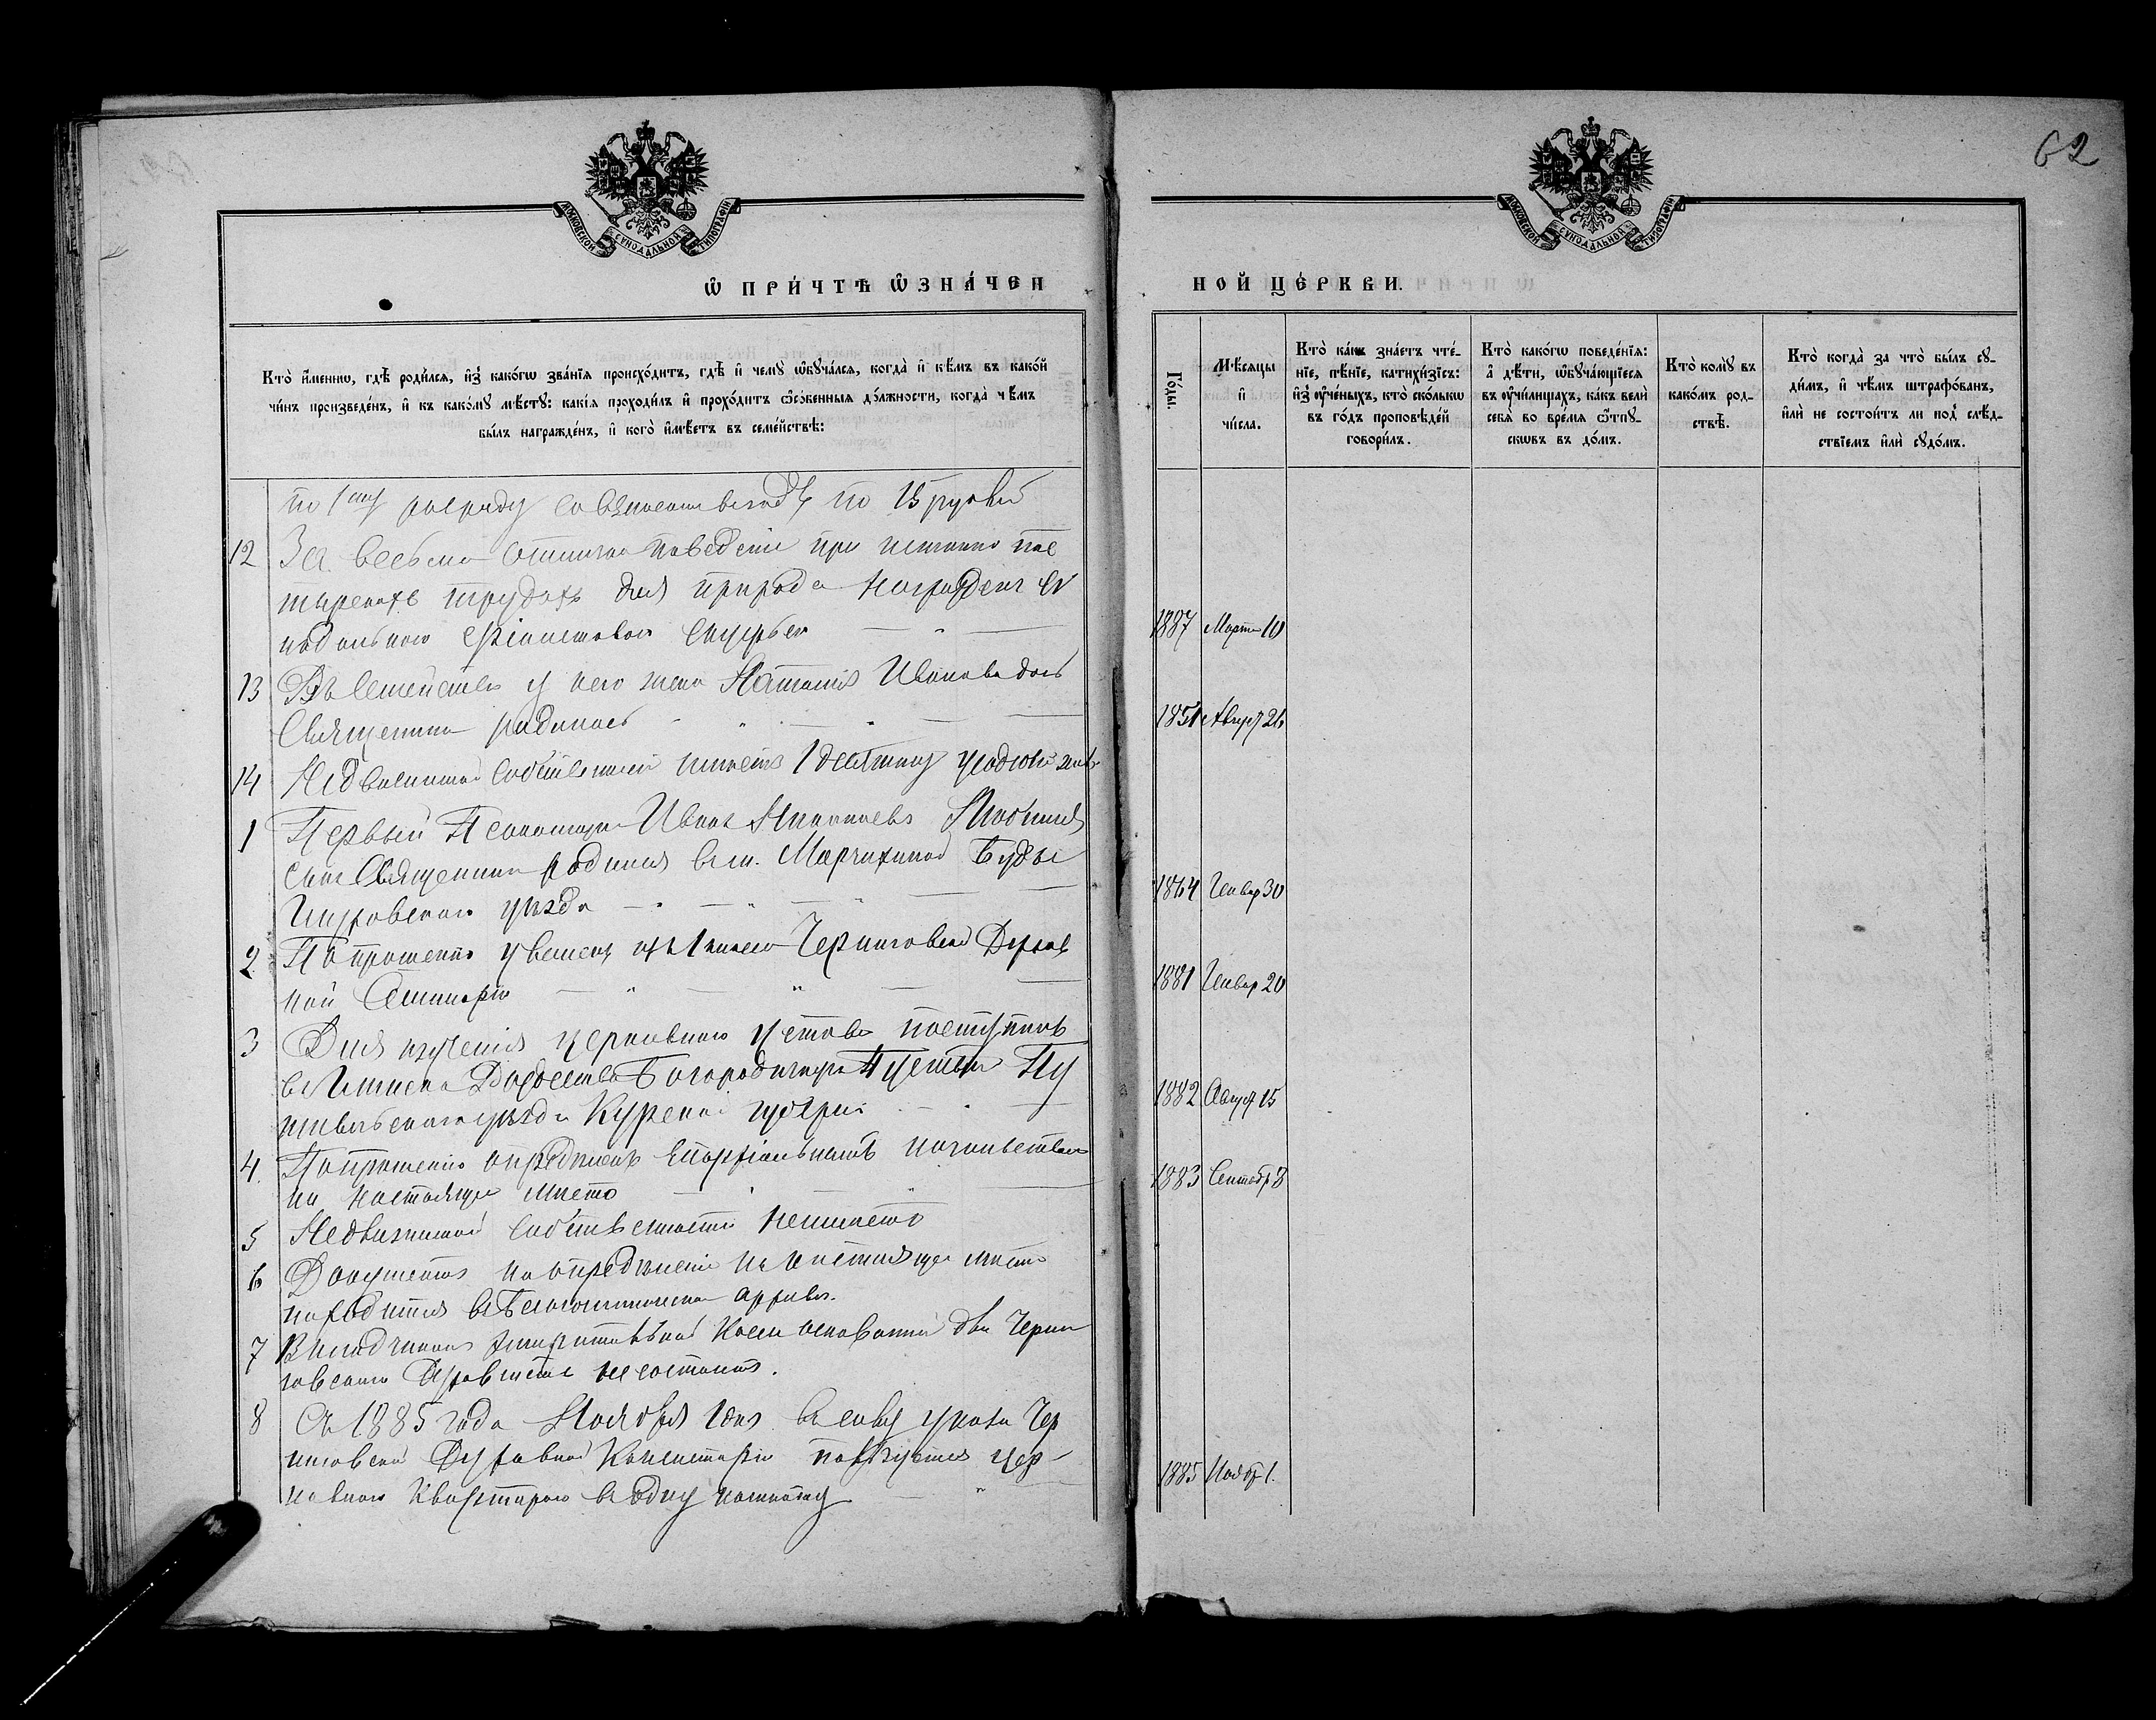 62
МОСКОВСКОЙ СѴНОДАЛЬНОЙ ТИПОГРАФІИ
МОСКОВСКОЙ СѴНОДАЛЬНОЙ ТИПОГРАФІИ
Ѡ ПРИ́ЧТѢ Ѡ҆ЗНА́ЧЕН
НОЙ ЦЕ́РКВИ.
Кто̀ и҆́меннѡ, гдѣ̀ роди́лсѧ, и҆з̾ како́гѡ зва́нїѧ происхо́дитъ, гдѣ̀ и҆ чемꙋ̀ ѡ҆бꙋча́лсѧ, когда̀ и҆ кѣ́мъ въ како́й
чи́нъ произведе́нъ, и҆ къ како́мꙋ мѣ́стꙋ: какі́ѧ проходи́лъ и҆ прохо́дитъ ѻ҆со́бенныѧ дѡ́лжности, когда̀ чѣ́мъ
бы́лъ награжде́нъ, и҆ кого̀ и҆мѣ́етъ въ семе́йствѣ:
Го́ды.
Мѣ́сѧцы
и҆
чи́сла.
Кто̀ ка́кѡ зна́етъ чте́-
нїе, пѣ́нїе, катихи́зїсъ:
и҆з̾ ᲂу҆че́ныхъ, кто̀ ско́лькѡ
въ го́дъ проповѣ́дей
говори́лъ.
Кто̀ како́гѡ поведе́нїѧ:
а҆ дѣ́ти, ѡ҆бꙋча́ющїесѧ
въ ᲂу҆чи́лищахъ, ка́къ велѝ
себѧ̀ во вре́мѧ ѿпꙋ-
скѡвъ въ до́мъ.
Кто̀ комꙋ̀ въ
како́мъ род-
ствѣ̀.
Кто̀ когда̀ за что̀ бы́лъ сꙋ-
ди́мъ, и҆ чѣ́мъ штрафо́ванъ,
и҆лѝ не состои́тъ ли под̾ слѣ́д-
ствїемъ и҆лѝ сꙋдо́мъ.
по 1му разряду со взносомъ въ годъ по 15 рублей
12 За весьма отлично поведеніе при истинно пас
тырскихъ трудахъ для прихода награжденъ
скуфьею 1887 Март 10
13 Въ семействѣ у него жена Наталія Иванова дочь
Священника родилась 1851 Август 26
14 Недвижимой собственности имѣетъ 1 десятину
1 Первый Псаломщикъ Иванъ
сынъ Священника родился въ м. Марчихиной Будѣ
Глуховскаго уѣзда 1864 Генвар 30
2 По прошенію уволенъ изъ 1 класса Черниговской Духов
ной Семинаріи 1881 Генвар 20
3 Для изученія церковнаго устава поступилъ
въ Глинскую Рождество Богородичную Пустынь Пу
тивльскаго уѣзда Курской губерніи 1882 Август 15
4 По прошенію опредѣленъ Епархіальнымъ начальствомъ
на настоящее мѣсто 1883 Сентябр 8
5 Недвижимой собственности неимѣетъ
6 Документъ на опредѣленіе на настоящее мѣсто
находится въ архивѣ.
7 Вкладчикомъ эмеритальной кассы основанной для Черни
говскаго Духовенства не состоитъ.
8 Съ 1885 года Ноября 1 дня въ силу указа Чер
ниговской Духовной Консисторіи пользуется цер-
ковною квартирою въ одну комнату 1885 Ноябр 1.